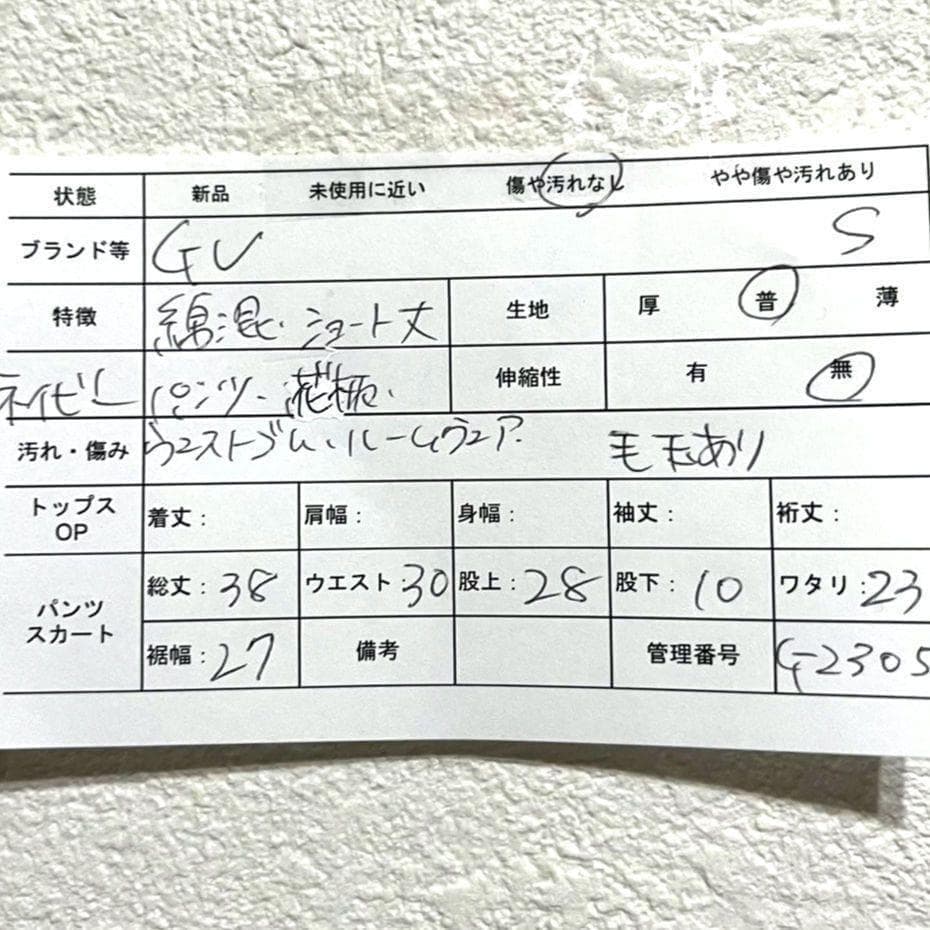 状態 新品 未使用に近い 傷や汚れなし やや傷や汚れあり
ブランド等 GU S
特徴 綿混・ショート丈 生地 厚 普 薄
ネイビー パンツ・花柄・ 伸縮性 有 無
汚れ・傷み ウエストゴム・ルームウェア 毛玉あり
トップス OP 着丈: 肩幅: 身幅: 袖丈: 裄丈:
パンツ スカート 総丈:38 ウエスト:30 股上:28 股下:10 ワタリ:23
裾幅:27 備考 管理番号 G-2305